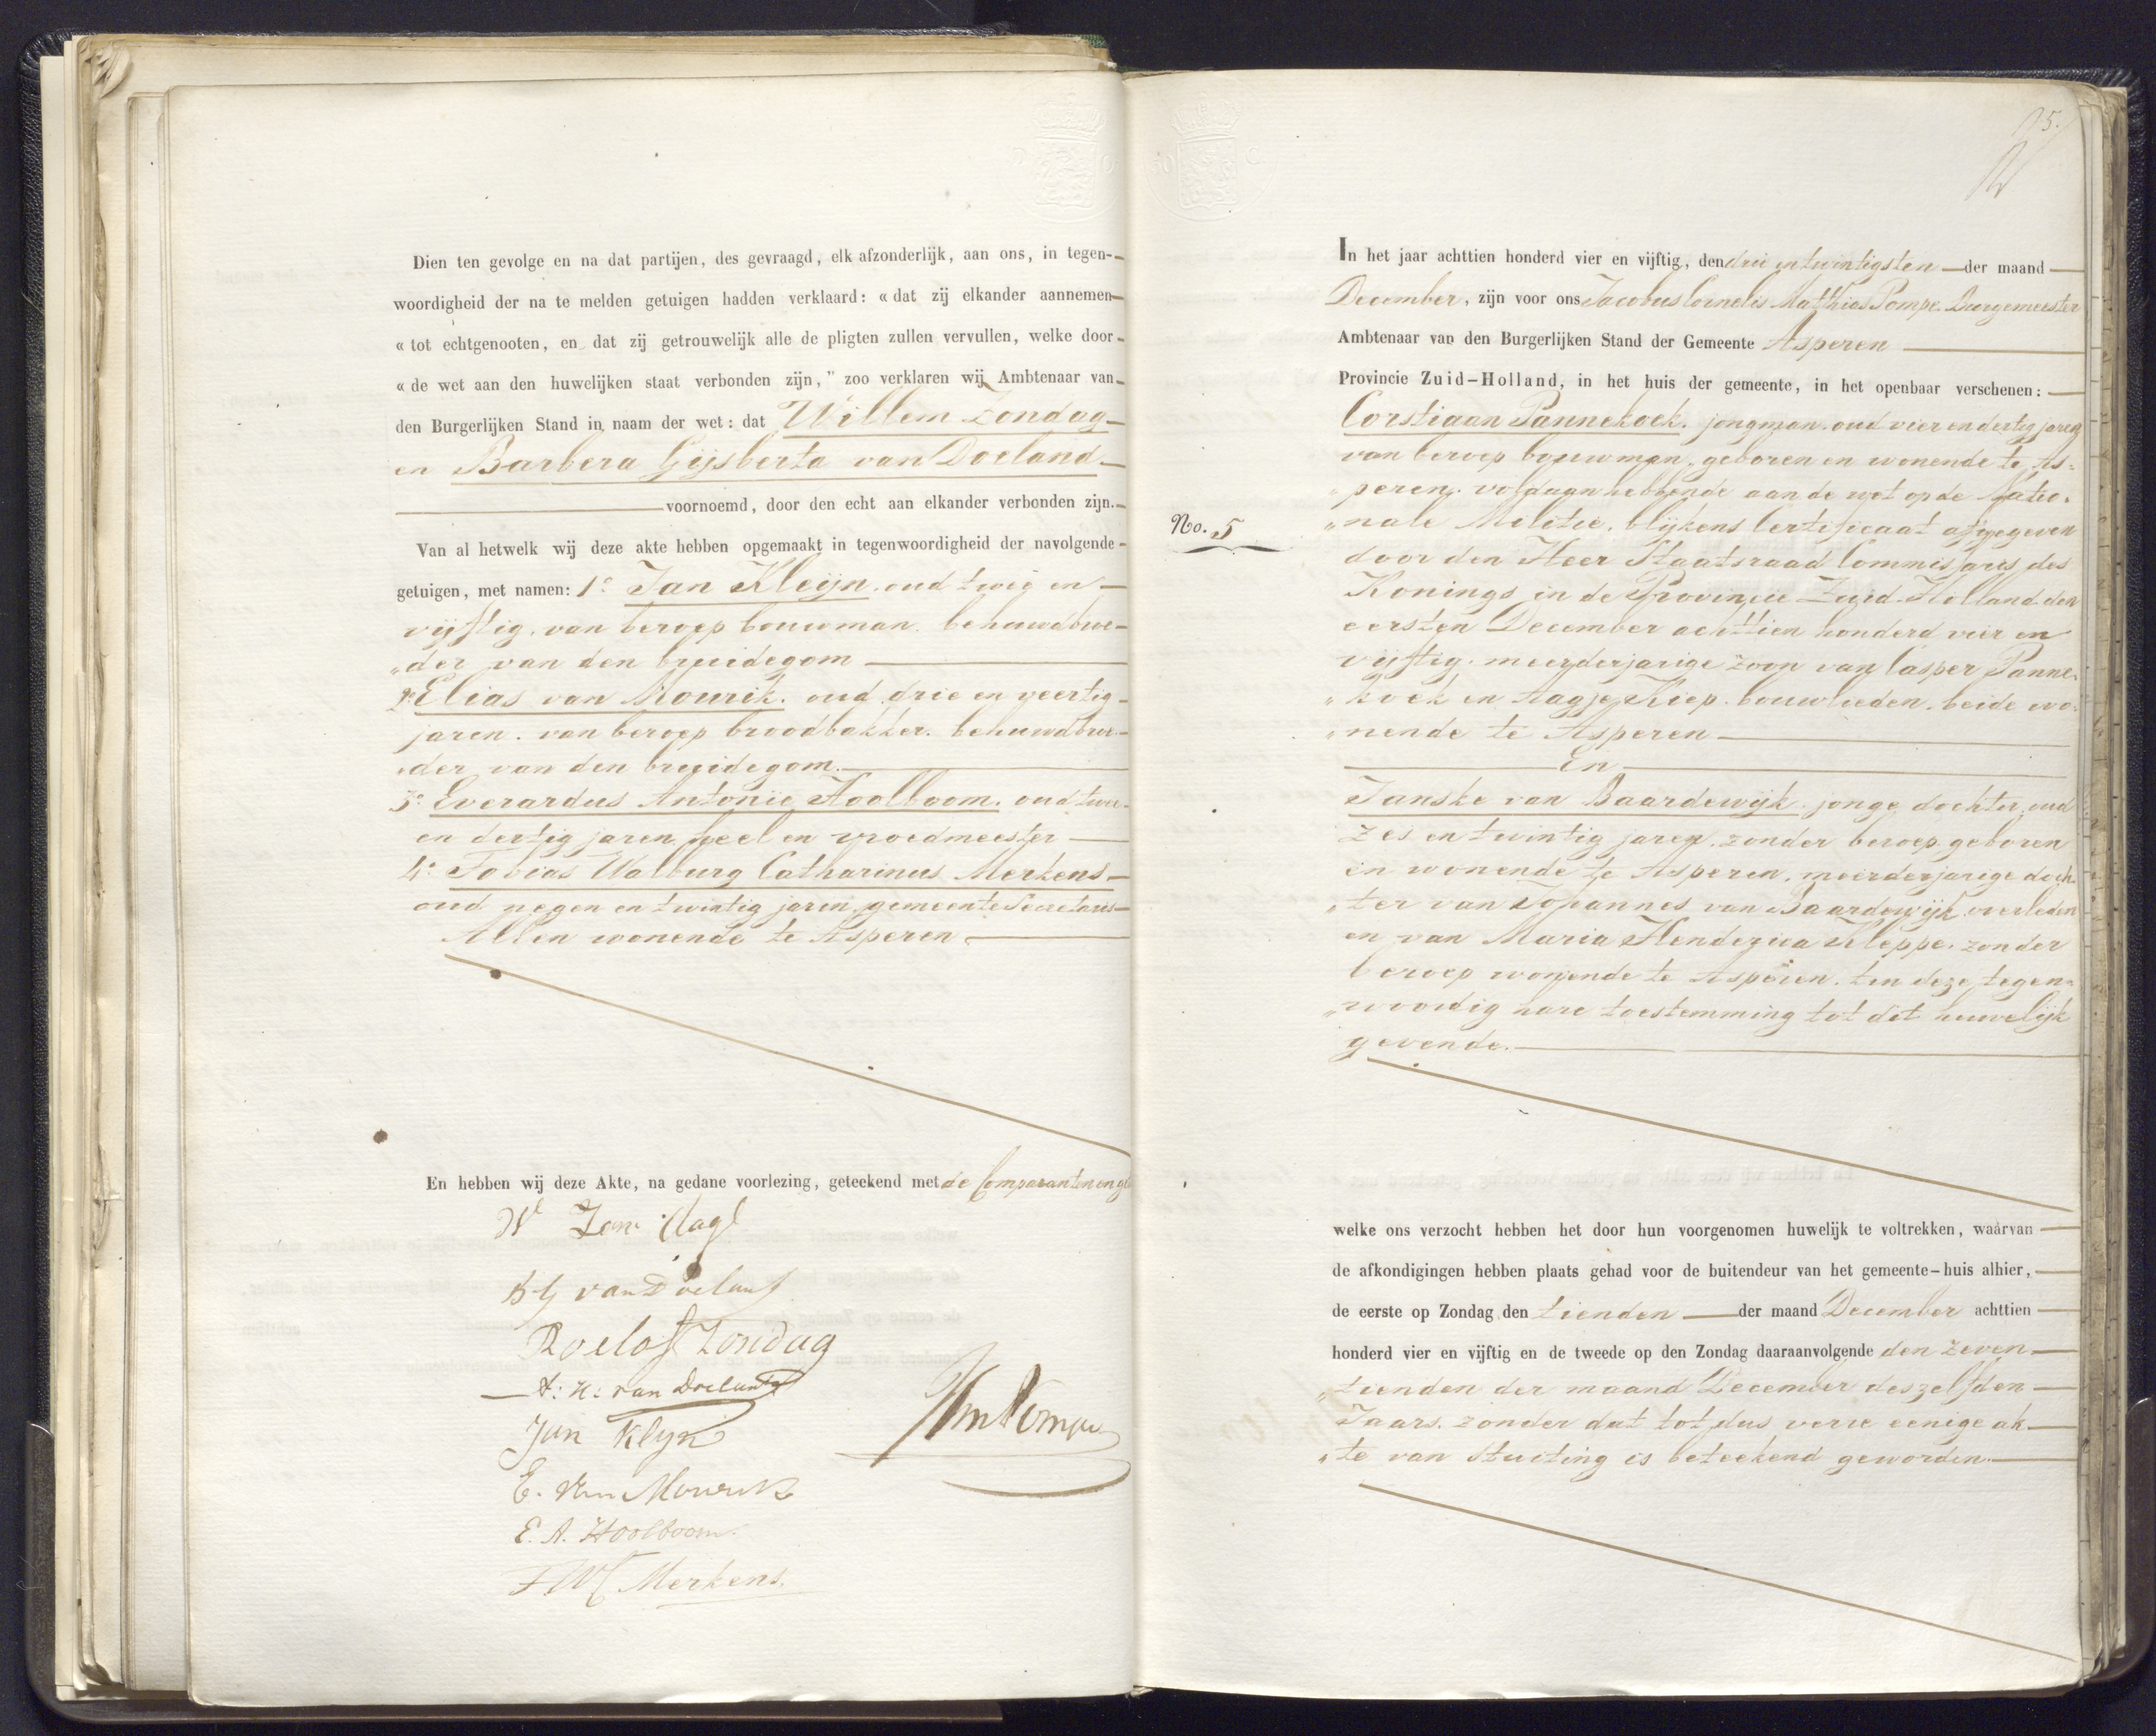 Dien ten gevolge en na dat partijen, des gevraagd, elk afzonderlijk, aan ons, in tegen-
woordigheid der na te melden getuigen hadden verklaard: « dat zij elkander aannemen
« tot echtgenooten, en dat zij getrouwelijk alle de pligten zullen vervullen, welke door
« de wet aan den huwelijken staat verbonden zijn," zoo verklaren wij Ambtenaar van
den Burgerlijken Stand in naam der wet: dat Willem Zondag
en Barbera Gijsberta van Doeland
voornoemd, door den echt aan elkander verbonden zijn.
Van al hetwelk wij deze akte hebben opgemaakt in tegenwoordigheid der navolgende
getuigen, met namen: 1e Jan Kleijn. oud twee en
vijftig. van beroep bouwman. behuwdbroe-
„der van den bruidegom
2e Elias van Mourik. oud drie en veertig
jaren. van beroep broodbakker. behuwdbroe-
„der van den bruidegom.
3e Everardus Antonie Hoolboom. oud twee
en dertig jaren heel en vroedmeester
4e Tobias Walburg Catharinus Merkens
oud negen en twintig jaren, gemeente Secretaris
Allen wonende te Asperen
En hebben wij deze Akte, na gedane voorlezing, geteekend met de Comparanten en
W Zondag
B G van Doeland
Roelof Zondag
A: H: van Doeland
Jan Klijn
E. van Mourik
E. A. Hoolboom.
TWC Merkens.
15.
In het jaar achttien honderd vier en vijftig, den drie en twintigsten der maand
December, zijn voor ons Jacobus Cornelis Matthias Pompe. Burgemeester
Ambtenaar van den Burgerlijken Stand der Gemeente Asperen
Provincie Zuid-Holland, in het huis der gemeente, in het openbaar verschenen:
Corstiaan Pannekoek. jongman. oud vier en dertig jaren
van beroep bouwman, geboren en wonende te As-
„peren. voldaan hebbende aan de wet op de Natio-
No. 5
„nale Militie. blijkens Certificaat afgegeven
door den Heer Staatsraad Commissaris des
Konings in de Provincie Zuid-Holland den
eersten December achttien honderd vier en
vijftig. meerderjarige zoon van Casper Panne-
„koek en Aagje Kiep. bouwlieden. beide wo-
„nende te Asperen
En
Janske van Baardewijk. jonge dochter, oud
zes en twintig jaren. zonder beroep. geboren
en wonende te Asperen. meerderjarige doch-
„ter van Johannes van Baardewijk overleden
en van Maria Hendezina Kleppe. zonder
beroep wonende te Asperen. ten deze tegen-
„woordig hare toestemming tot dit huwelijk
gevende.
welke ons verzocht hebben het door hun voorgenomen huwelijk te voltrekken, waarvan
de afkondigingen hebben plaats gehad voor de buitendeur van het gemeente-huis alhier,
de eerste op Zondag den tienden der maand December achttien
honderd vier en vijftig en de tweede op den Zondag daaraanvolgende den zeven
„tienden der maand December deszelfden
Jaars. zonder dat tot dus verre eenige ak-
„te van stuiting is beteekend geworden.